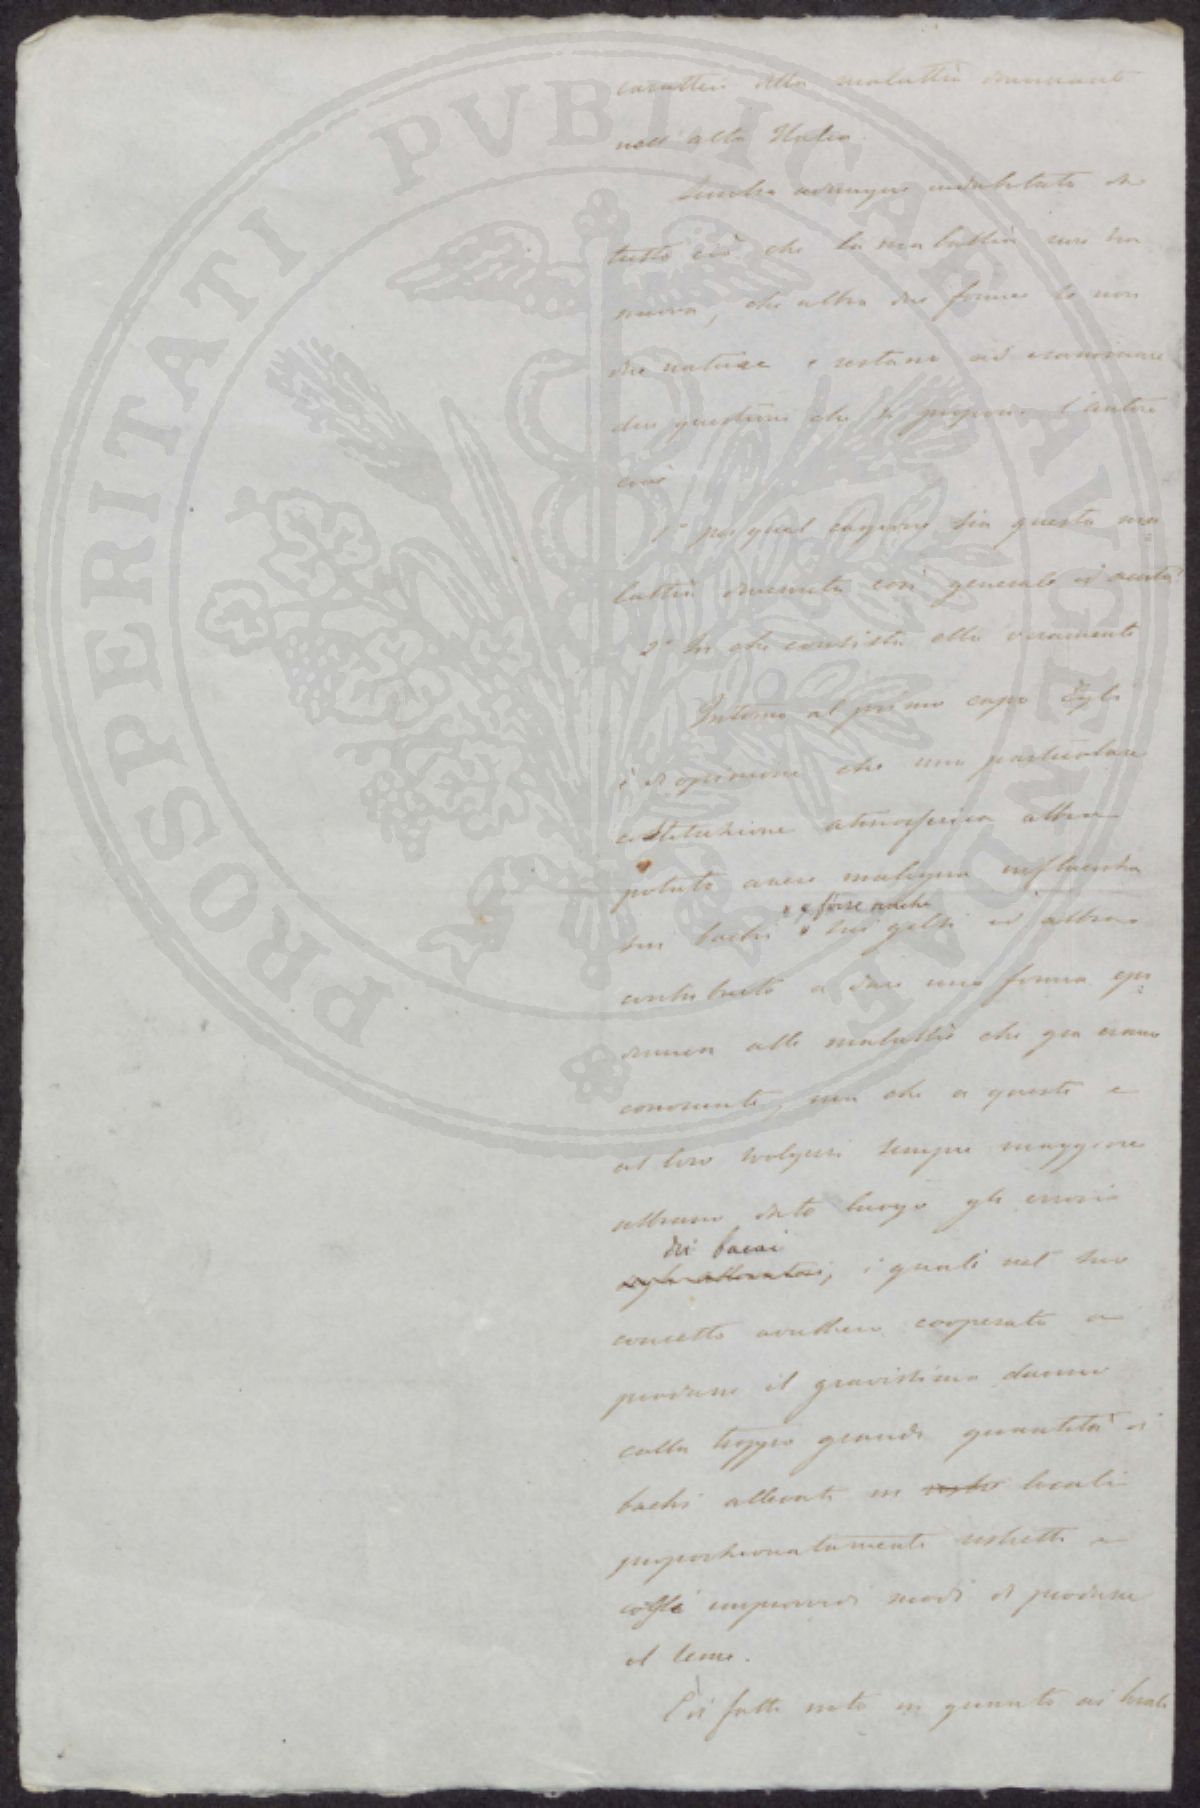 caratteri della malattia dominante
nell'alta Italia.
Sembra adunque indubitato da
tutto ciò che la malattia non sia
nuova, che abbia due forme se non
due nature e restano ad esaminare
due questioni che si propone l'autore
cioè
1° per qual cagione sia questa ma
lattia divenuta così generale ed acuta
2° In che consista ella veramente
Intorno al primo capo Egli
è di opinione che una particolare
costituzione atmosferica abbia
potuto avere maligna influenza
e forse anche
sui bachi sui gelsi ed abbia
contribuito a dare una forma epi
demica alle malattie che già erano
conosciute, ma che a queste e
al loro svolgersi sempre maggiore
abbiano dato luogo gli errori
dei bacai
degli allevatori, i quali nel suo
concetto avrebbero cooperato a
produrre il gravissimo danno
colla troppo grande quantità di
bachi allevati in locali
proporzionatamente ristretti e
cogli improvvidi modi di produrre
il seme.
È di fatti noto in quanto ai locali
PROSPERITATI PVBLICAE AVGENDAE